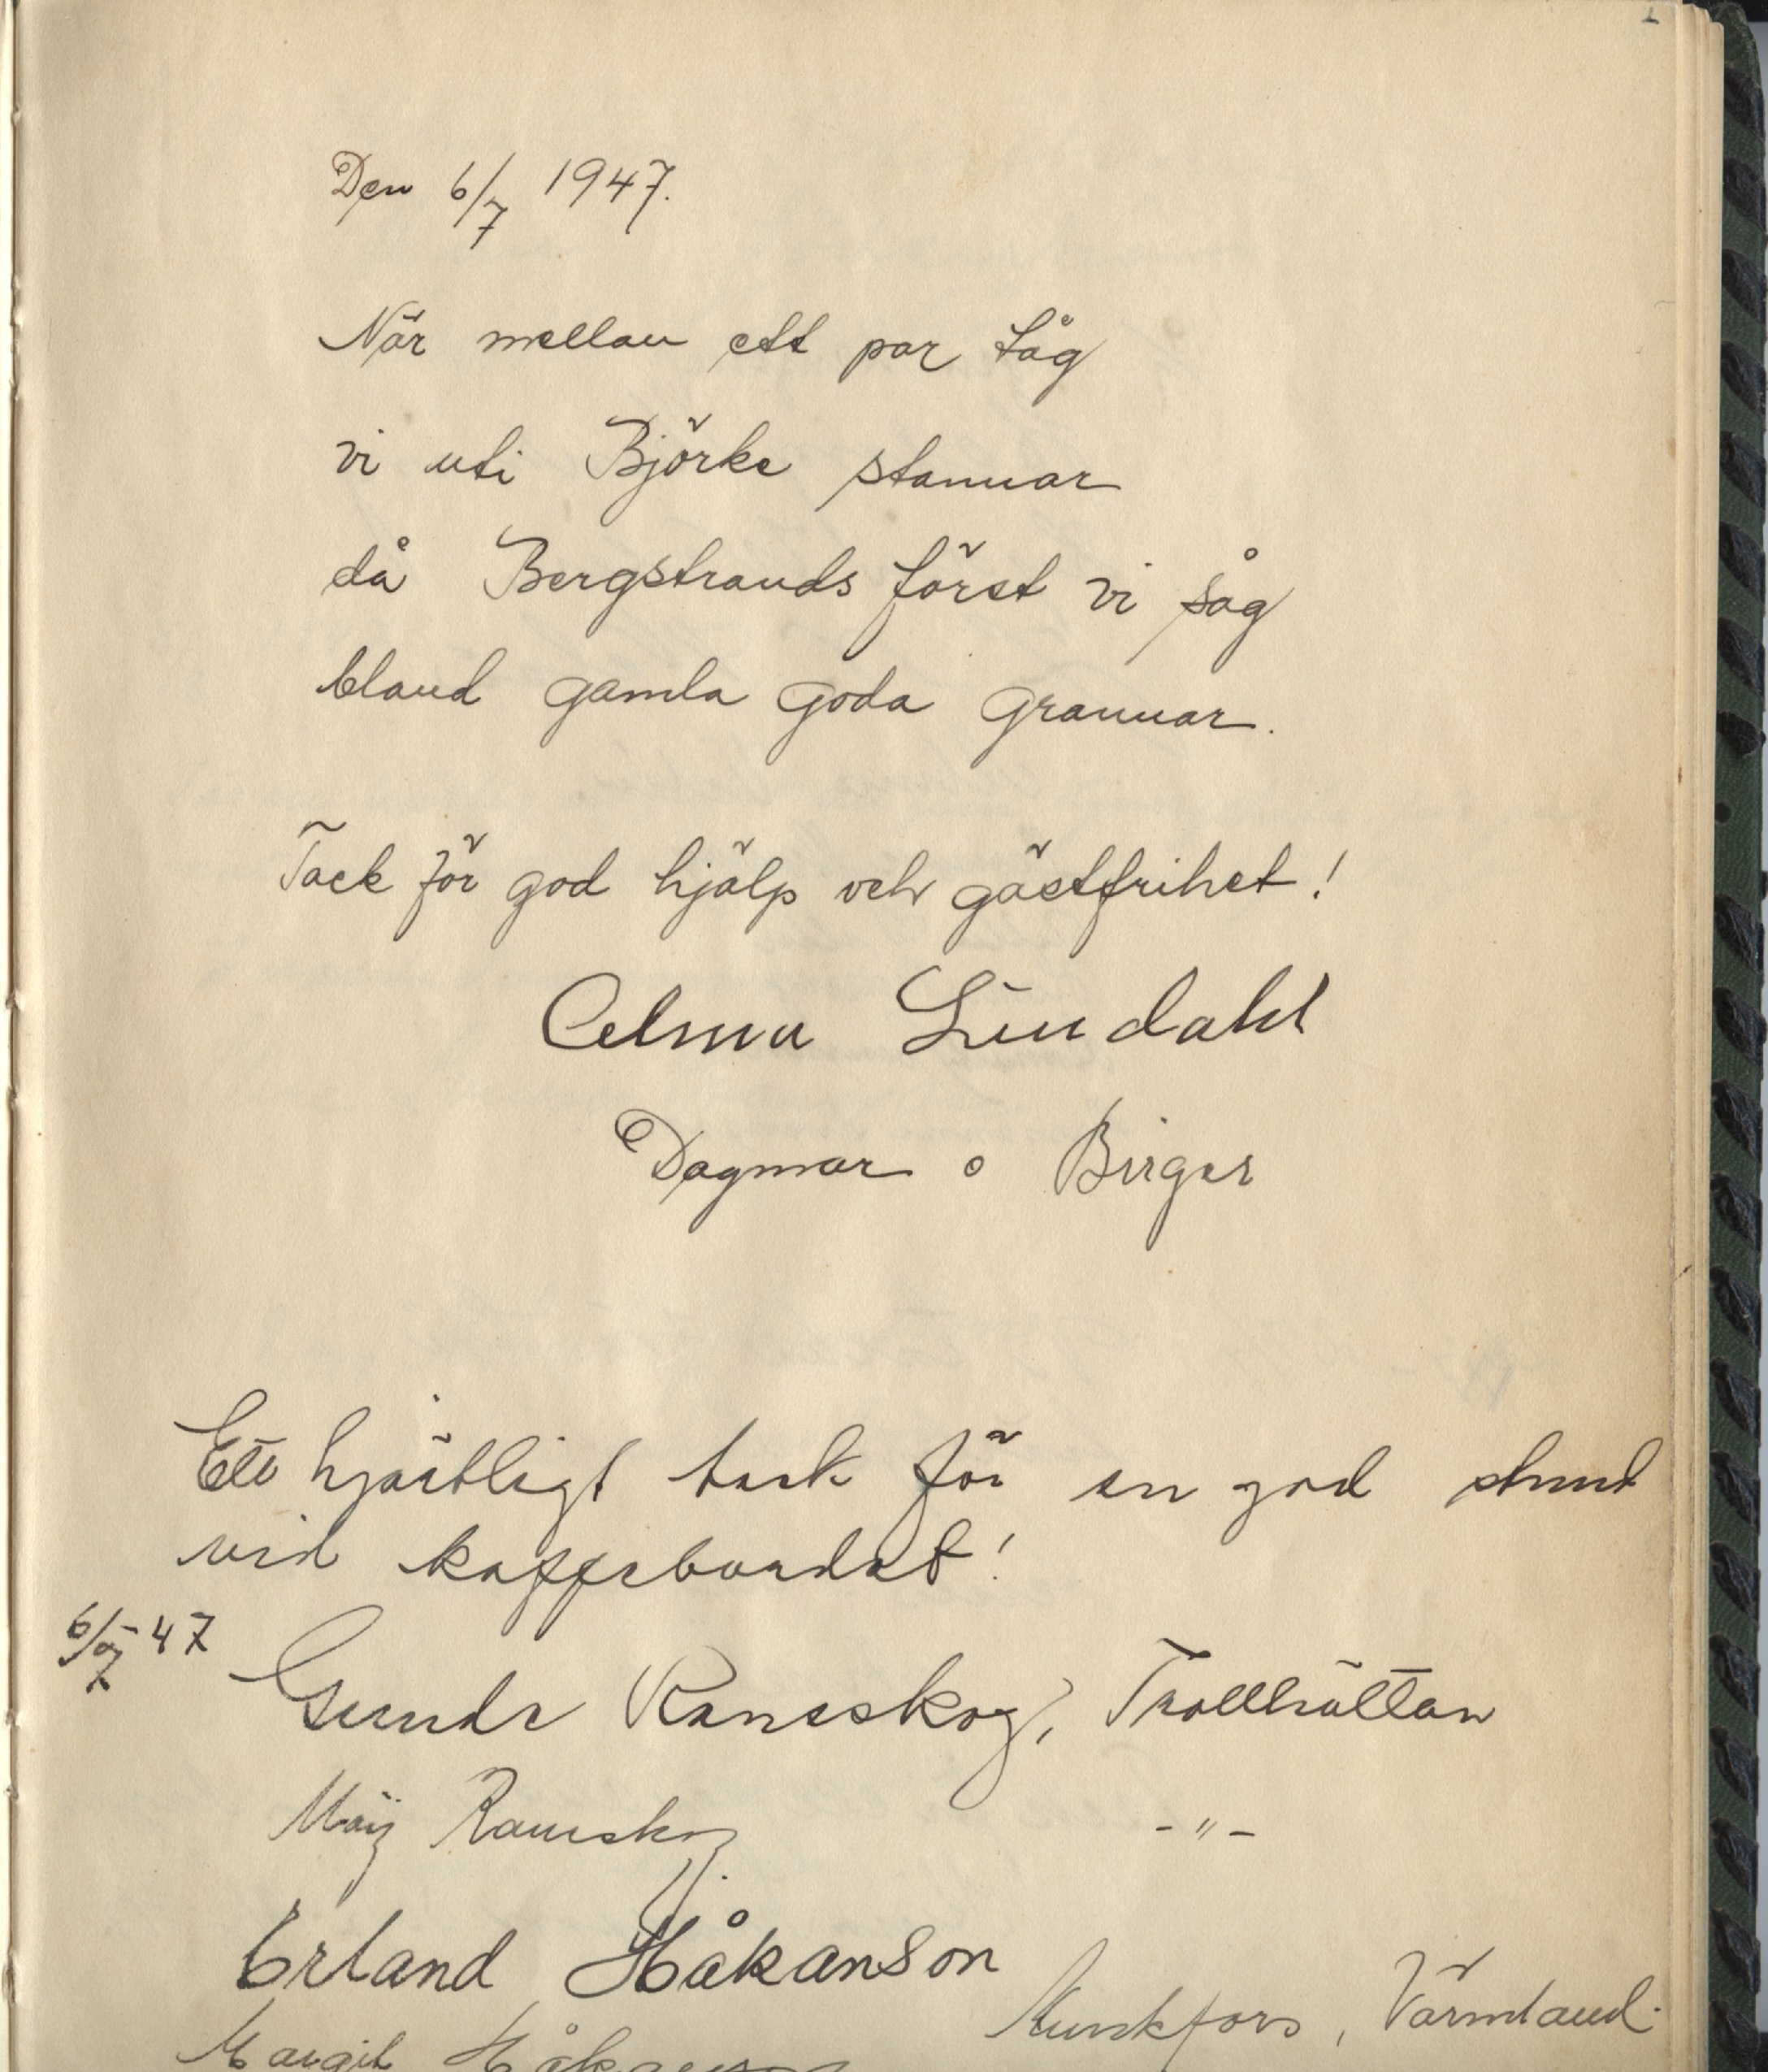 1
Den 6/7 1947.
När mellan ett par tåg
vi uti Björke stannar
då Bergstrands först vi såg
bland gamla goda grannar.
Tack för god hjälp och gästfrihet!
Celma Lindahl
Dagmar o Birger
Ett hjärtligt tack för en god stund
vid kaffebordet!
6/7 47
Gunde Ramskog, Trollhättan
Maij Ramskog -"-
Erland Håkanson
Munkfors, Värmland.
Margit Håkanson